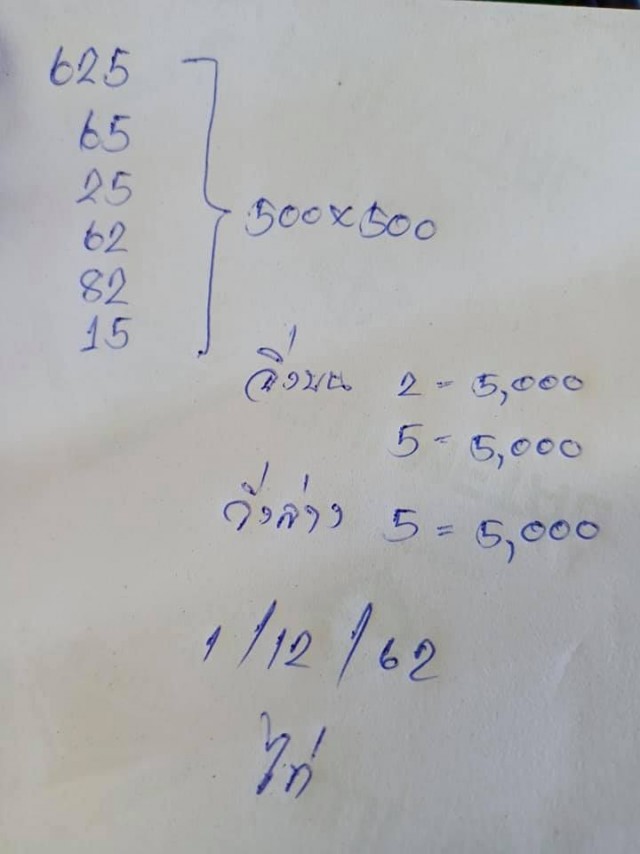 625
65
25
62
82
15
500×500
วิ่งบน 2 - 5,000
5 - 5,000
วิ่งล่าง 5 = 5,000
1/12/62
ไก่